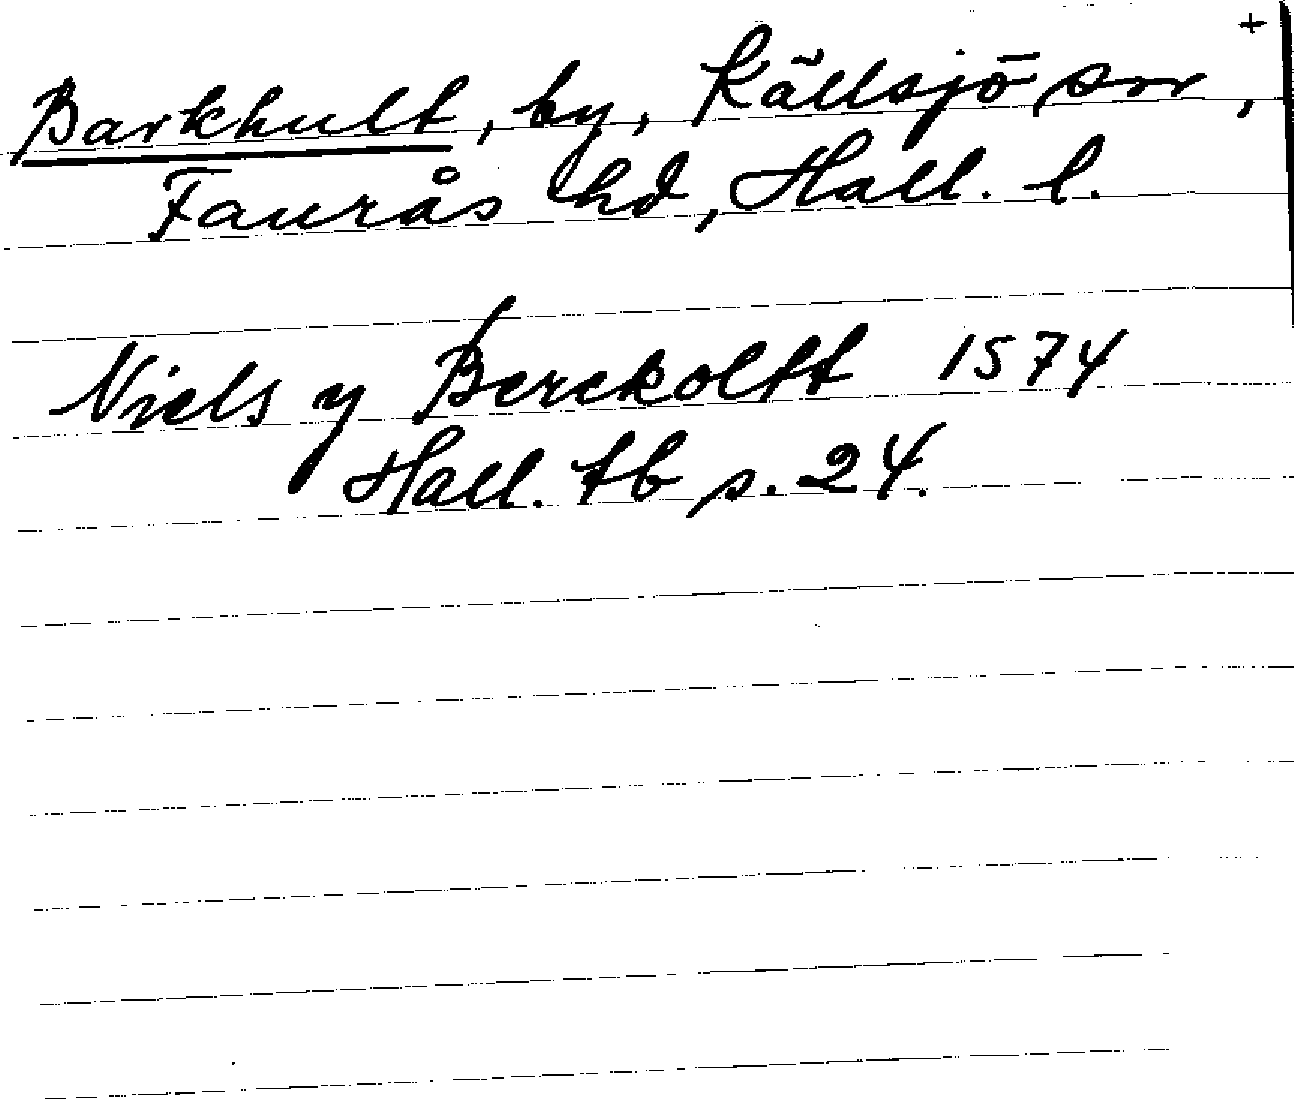 +
Barkhult, by, Källsjö sn,
Faurås hd, Hall. l.
Niels y Berckoltt 1574
Hall. tb s. 24.